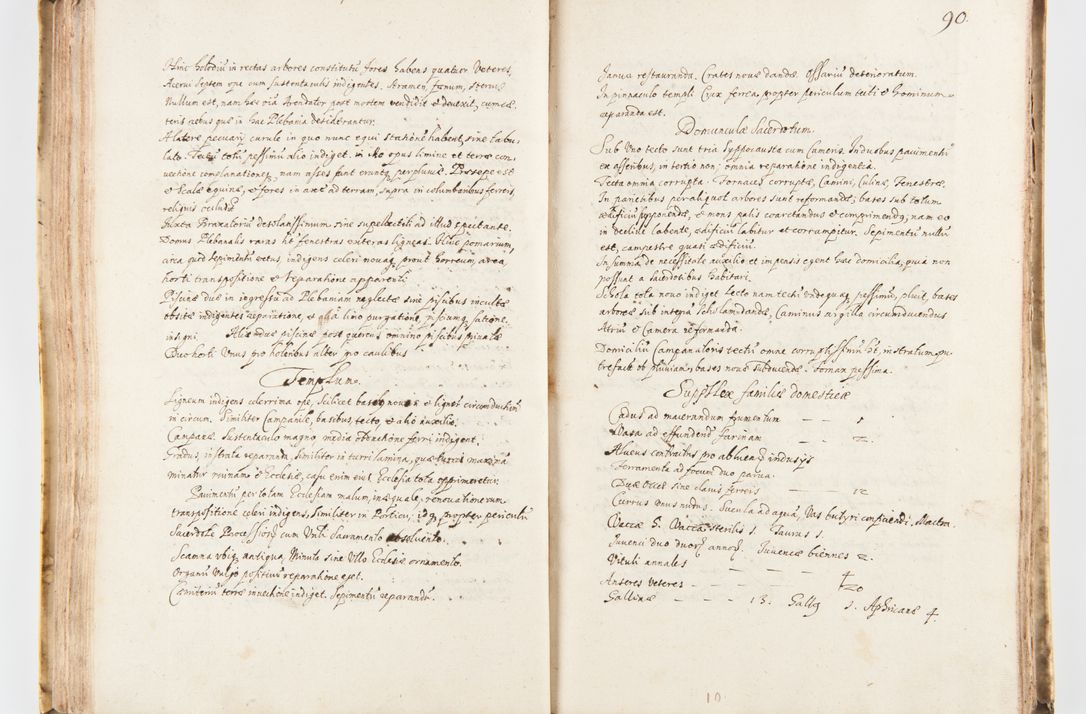 Hinc holodiũ in rectas arbores constitutũ fores habens quatuor veteres.
Acervi septem ope cum sustentaculis indigentes. Stramen, fœnum, stercus
Nullum est, nam hæc oĩa Arendator post mortem vendidit et devexit, cum cæ-
teris rebus quæ in hac Plebania desiderantur.
A latere pecuarij currule in quo nunc equi stationẽ habent, sine tabu-
lato. Tectũ totũ pessimũ alio indiget. in illo opus limine et terræ con-
vectione complanatione, nam asses sunt perpluviæ. Præsepe est
et scalæ equinæ, et fores in axe ad terram, supra in columbonibus ferreis,
reliquis
Juxta Braxatoriũ desolatissimum sine supellectili ad illud spectante.
Domus Plebanalis raras ht fenestras exteras ligneas. Huic pomarium,
circa quod sepimentũ vetus, indigens celeri novatione, prout horreum, area,
horti transpositione et reparatione apparenti.
Piscinæ duæ in ingressu ad Plebaniam neglectæ sine piscibus incultæ
obsitæ indigentes reparatione, et purgatione, piscium satione.
insigni. Aliæ duæ piscinæ post quercus omnino piscibus privatæ
Duo horti Unus pro holeribus alter pro caulibus.
Templum.
Ligneum indigens celerrima ope, scilicet basibus novis et lignis circumductionẽ
in circum. Similiter Campanile, basibus, tecto, et alio auxilio.
Campanæ sustentaculo magno, media obtentione ferri indigent.
Gradus, instrata reparanda, similiter in turri lamina, quæ turri maximã
minatur ruinam et Ecclesiæ, casu enim eius Ecclesia tota opprimeretur.
Pavimentũ per totam Ecclesiam malum, inæquale, renovatione cum
transpositione celeri indigens, similiter in Porticu, idq propter periculũ
Sacerdotis Processionẽ cum Venli Sacramento absolventis.
Scamna ubiq antiqua, Minuta sine Ullo Ecclesiæ ornamento.
Organũ Vulgo positivũ reparatione eget.
Cæmiteriũ terræ invectione indiget. Sepimentũ reparandũ.
90.
Janua restauranda. Crates novæ dandæ. Ossariũ deterioratum.
In pinnaculo templi Crux ferrea propter periculum tecti et hominum
reparanda est.
Domunculæ Sacerdotum.
Sub Uno tecto sunt tria hyppocausta cum Cameris. In duobus pavimentũ
ex asseribus, in tertio non, omnia reparatione indigentia.
Tecta omnia corrupta. Fornaces corruptæ, Camini, Culinæ, Fenestræ.
In parietibus per aliquot arbores sunt reformandæ, bases sub totum
ædificiũ supponendæ, et mons palis coarctandus et comprimendus, nam eo
in declive labente, ædificiũ labitur et corrumpitur. Sepimentũ nullũ
est, campestre quasi ædificiũ.
In summa de necessitate auxilio et impensis egent hæc domicilia, quia non
possunt a sacerdotibus habitari.
Schola tota novo indiget tecto nam tectũ undequaq pessimũ, pluit, bases
arboreæ sub integra schola mandandæ, Caminus argilla circumducendus
Atriũ et Camera reformanda.
Domiciliũ Campanatoris tectũ omne corruptissimũ ht, instratum pu-
trefactũ ob pluviam, bases novæ subtruendæ. Fornax pessima.
Supellex familiæ domesticæ
Cadus ad macerandum frumentum — — 1
Vasa ad effundendũ farinam — — 2.
Alveus contritus pro abluendis indusijs
Ferramenta ad focum duo parva.
Duæ Occæ sine clavis ferreis — — — 12
Currus unus nudus. Situla ad aquã, Vas butyri conficiendi. Mactra.
Vaccæ 5. Vacca sterilis 1. Taurus 1.
Juvenci duo duorũ annorũ. Juvencæ biennes 2.
Vituli annales — — — 4
Anseres veteres — — — — — 20
Gallinæ — — — — 13. Gallus 1. Aphricanæ 4.
10